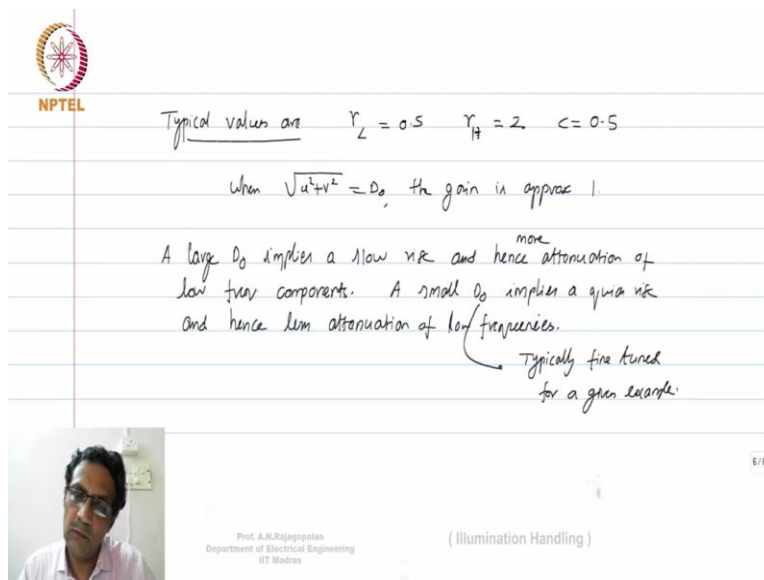 NPTEL
Typical values are γL = 0.5 γH = 2 c = 0.5
When √u²+v² = D₀, the gain is approx 1.
A large D₀ implies a slow rise and hence more attenuation of
low freq components. A small D₀ implies a quick rise
and hence less attenuation of low frequencies.
Typically fine tuned
for a given example.
6/6
Prof. A.N.Rajagopalan
Department of Electrical Engineering
IIT Madras
( Illumination Handling )